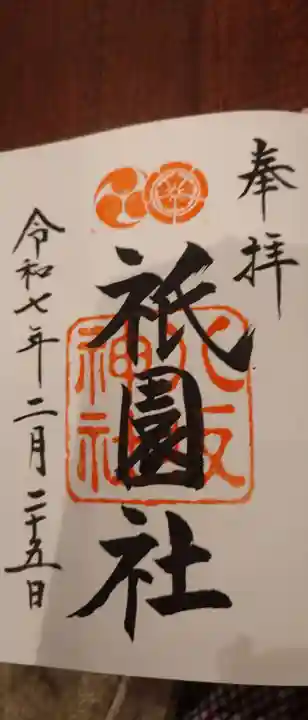 奉拝
祇園社
八坂
神社
令和七年二月二十五日